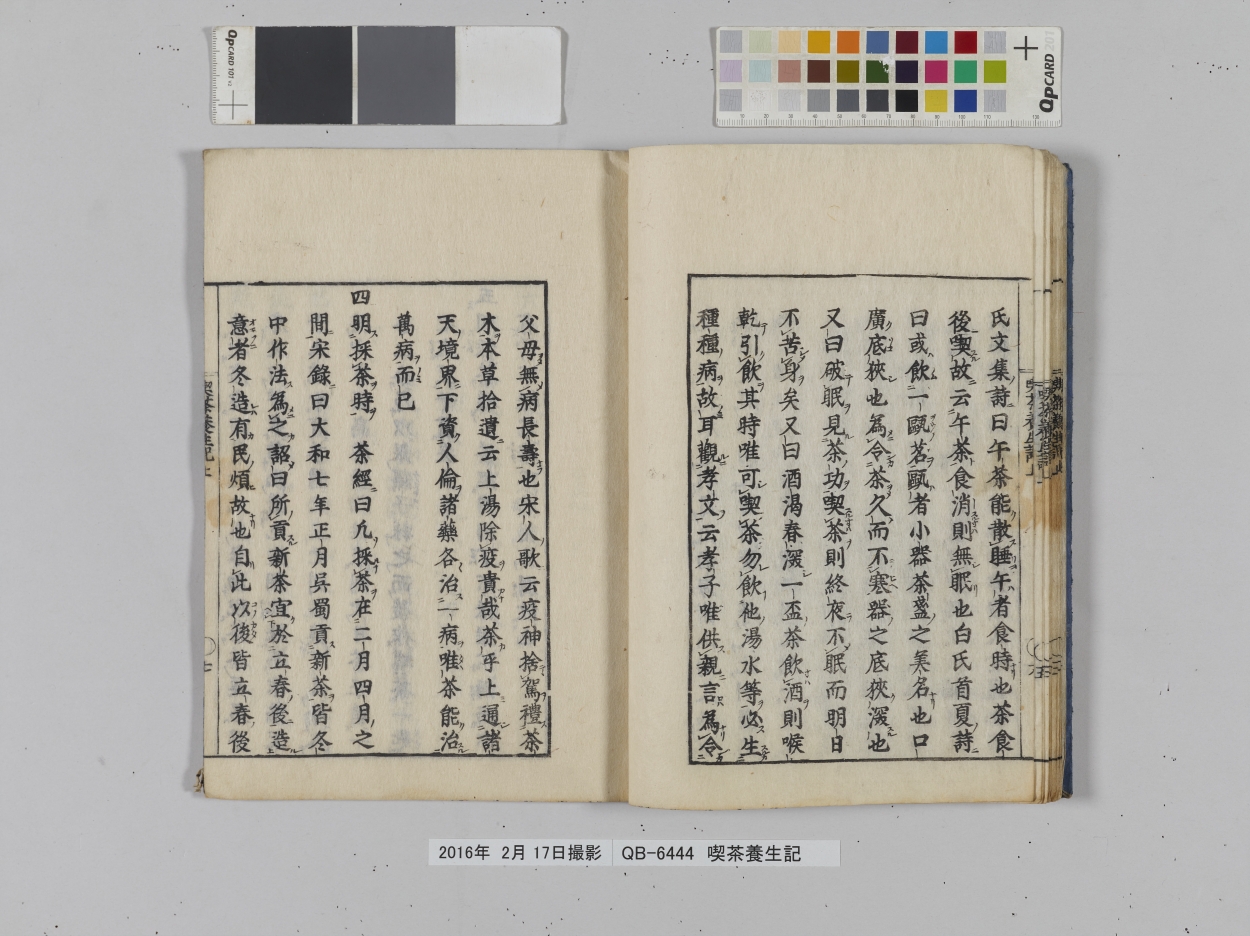 氏文集詩曰午茶能散睡午者食時也茶食
後喫故云午茶食消則無眠也白氏首夏詩
曰或飲一甌茗甌者小器茶盞之美名也口
廣底狹也爲令茶久而不寒器之底狹深也
又曰破眠見茶功喫茶則終夜不眠而明日
不苦身矣又曰酒渴春深一盃茶飲酒則喉
乾引飲其時唯可喫茶勿飲他湯水等必生
種種病故耳觀孝文云孝子唯供親言爲令
父母無病長壽也宋人歌云疫神捨駕禮茶
木本草拾遺云上湯除疫貴哉茶乎上通諸
天境界下資人倫諸藥各治一病唯茶能治
萬病而已
四明採茶時 茶經曰凡採茶在二月四月之
間宋錄曰大和七年正月呉蜀貢新茶皆冬
中作法爲之詔曰所貢新茶宜於立春後造
意者冬造有民煩故也自此以後皆立春後
喫茶養生記上
七
QPCARD 101
QPCARD 201
2016年 2月 17日撮影 QB-6444 喫茶養生記